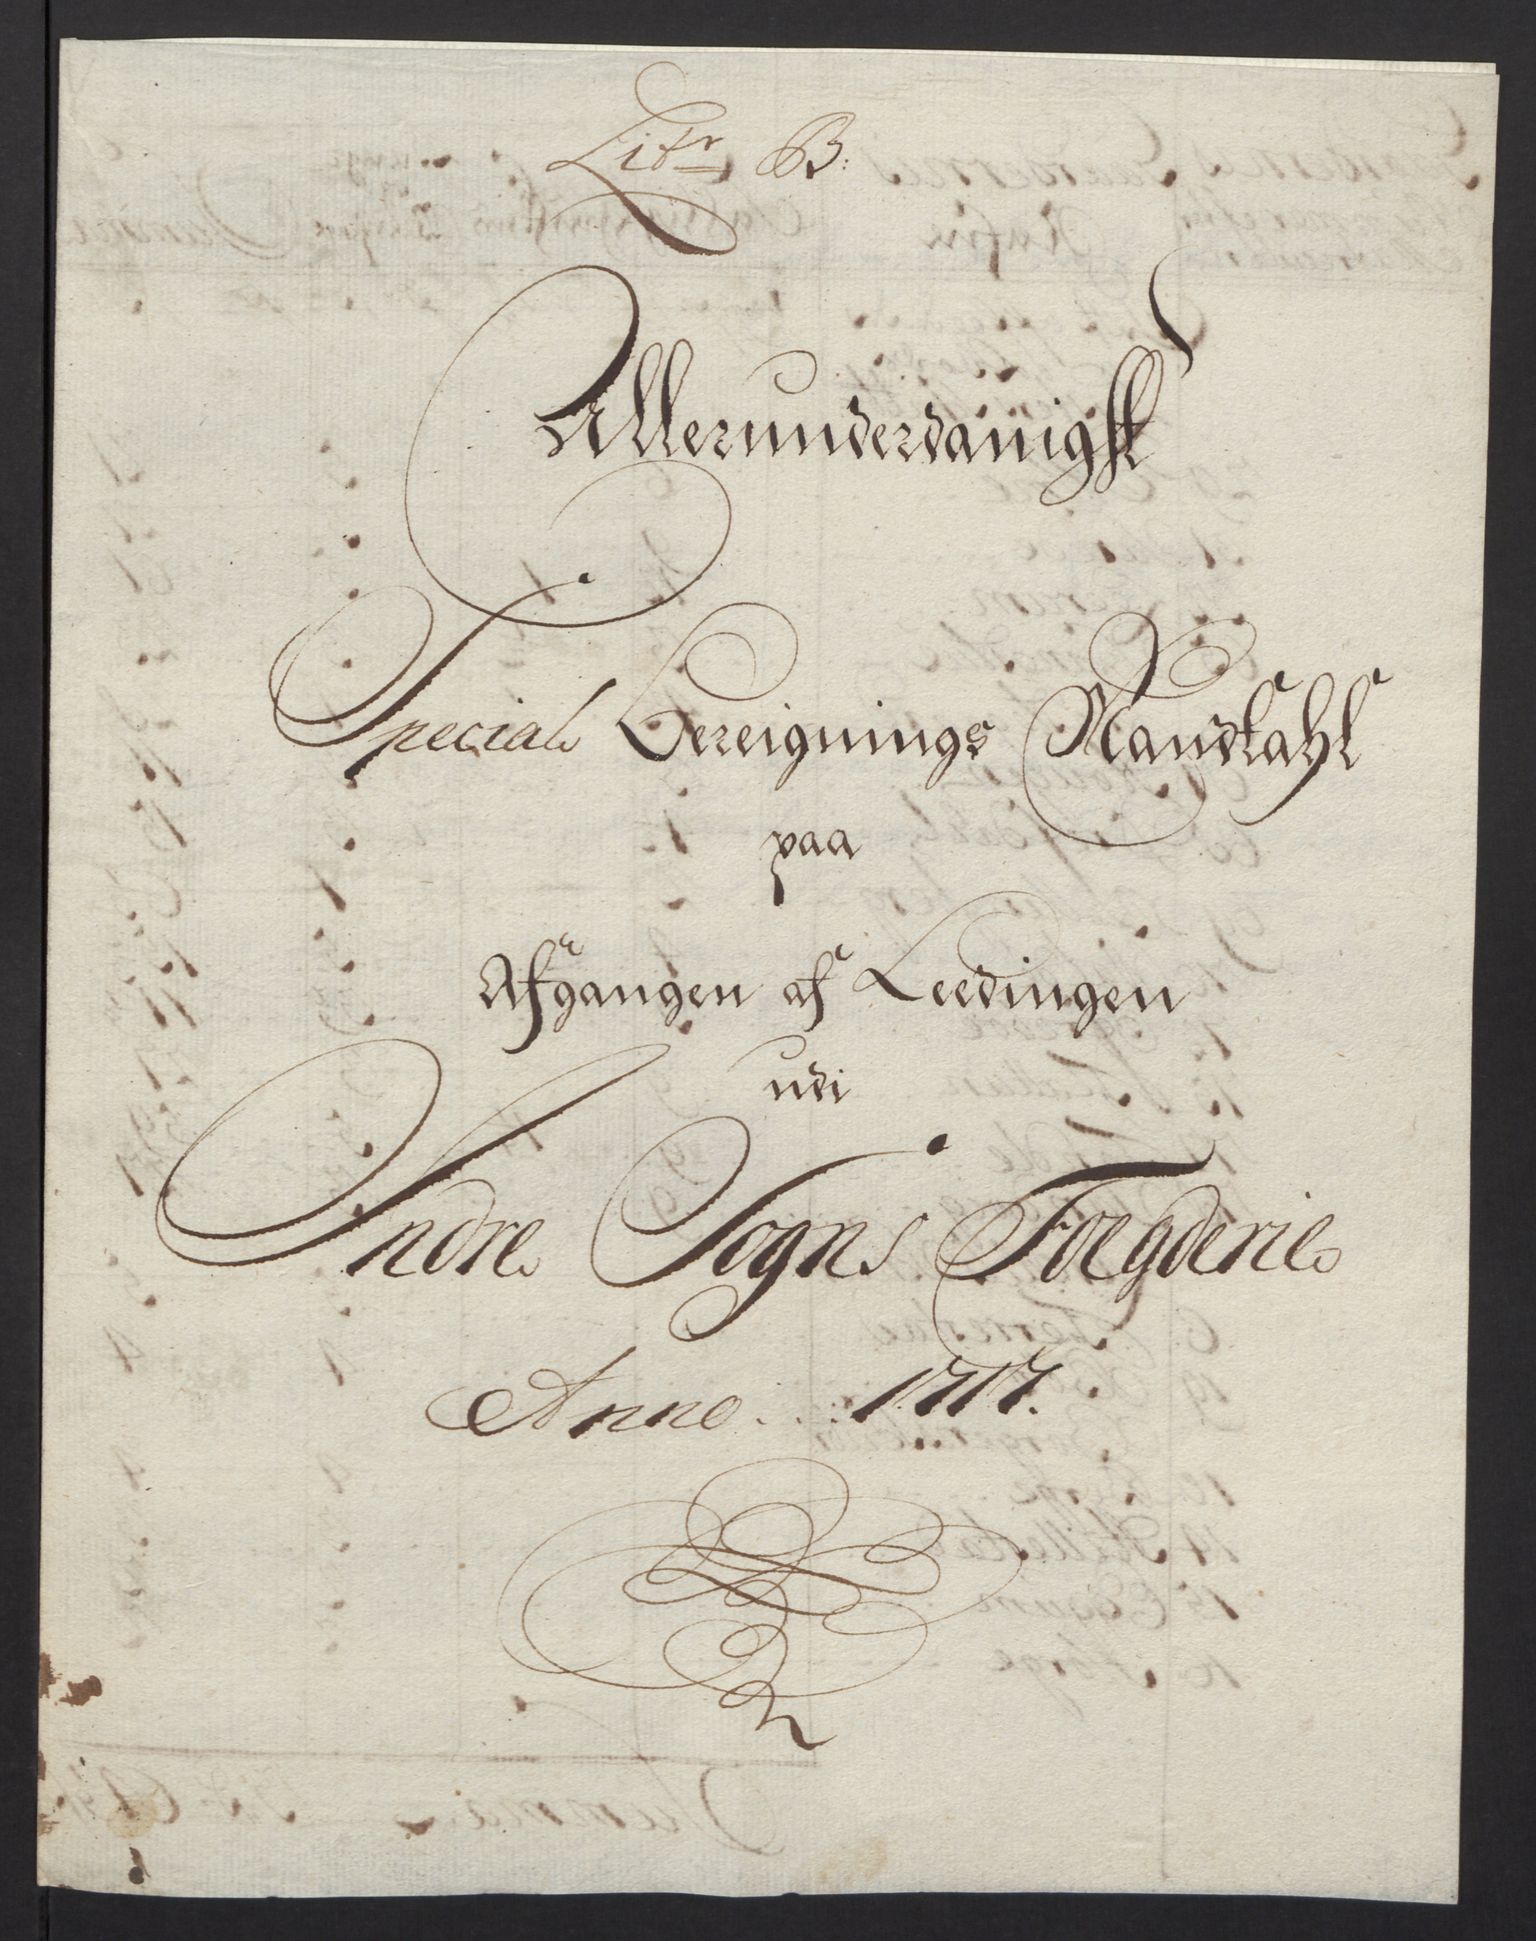 Litr B:
Allerunderdanigst
Special Bereignings Mandtahl
paa
Afgangen af Leedingen
udi
Indre Sogns Foegderie
Anno 1717.